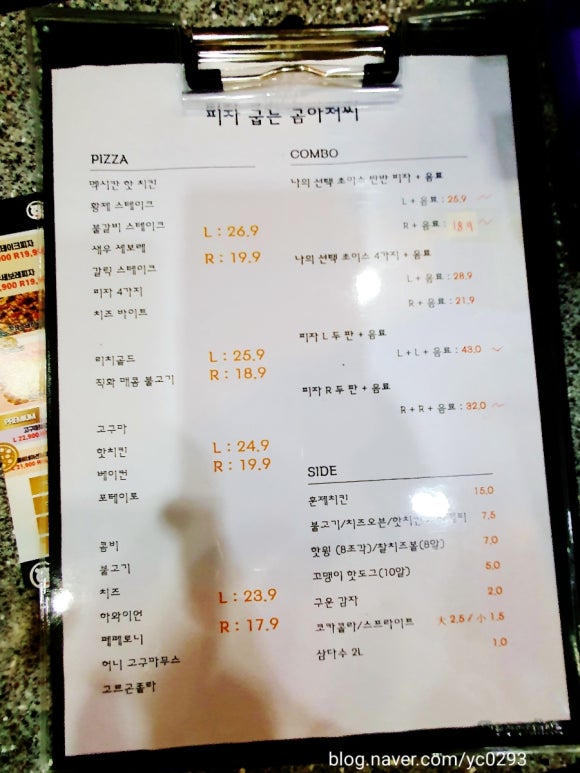 피자 굽는 곰아저씨
PIZZA
멕시칸 핫 치킨
황제 스테이크
불갈비 스테이크
새우 세보레
갈릭 스테이크
피자 4가지
치즈 바이트
L : 26.9
R : 19.9
리치골드
직화 매콤 불고기
L : 25.9
R : 18.9
고구마
핫치킨
베이컨
포테이토
L : 24.9
R : 19.9
콤비
불고기
치즈
하와이언
페페로니
허니 고구마무스
고르곤졸라
L : 23.9
R : 17.9
COMBO
나의 선택 초이스 반반 피자 + 음료
L + 음료 : 25.9
R + 음료 : 18.9
나의 선택 초이스 4가지 + 음료
L + 음료 : 28.9
R + 음료 : 21.9
피자 L 두 판 + 음료
L + L + 음료 : 43.0
피자 R 두 판 + 음료
R + R + 음료 : 32.0
SIDE
훈제치킨 15.0
불고기/치즈오븐/핫치킨 7.5
핫윙 (8조각)/찰치즈볼(8알) 7.0
꼬맹이 핫도그(10알) 5.0
구운 감자 2.0
코카콜라/스프라이트 大 2.5 / 小 1.5
삼다수 2L 1.0
PREMIUM
L 22,900
blog.naver.com/yc0293